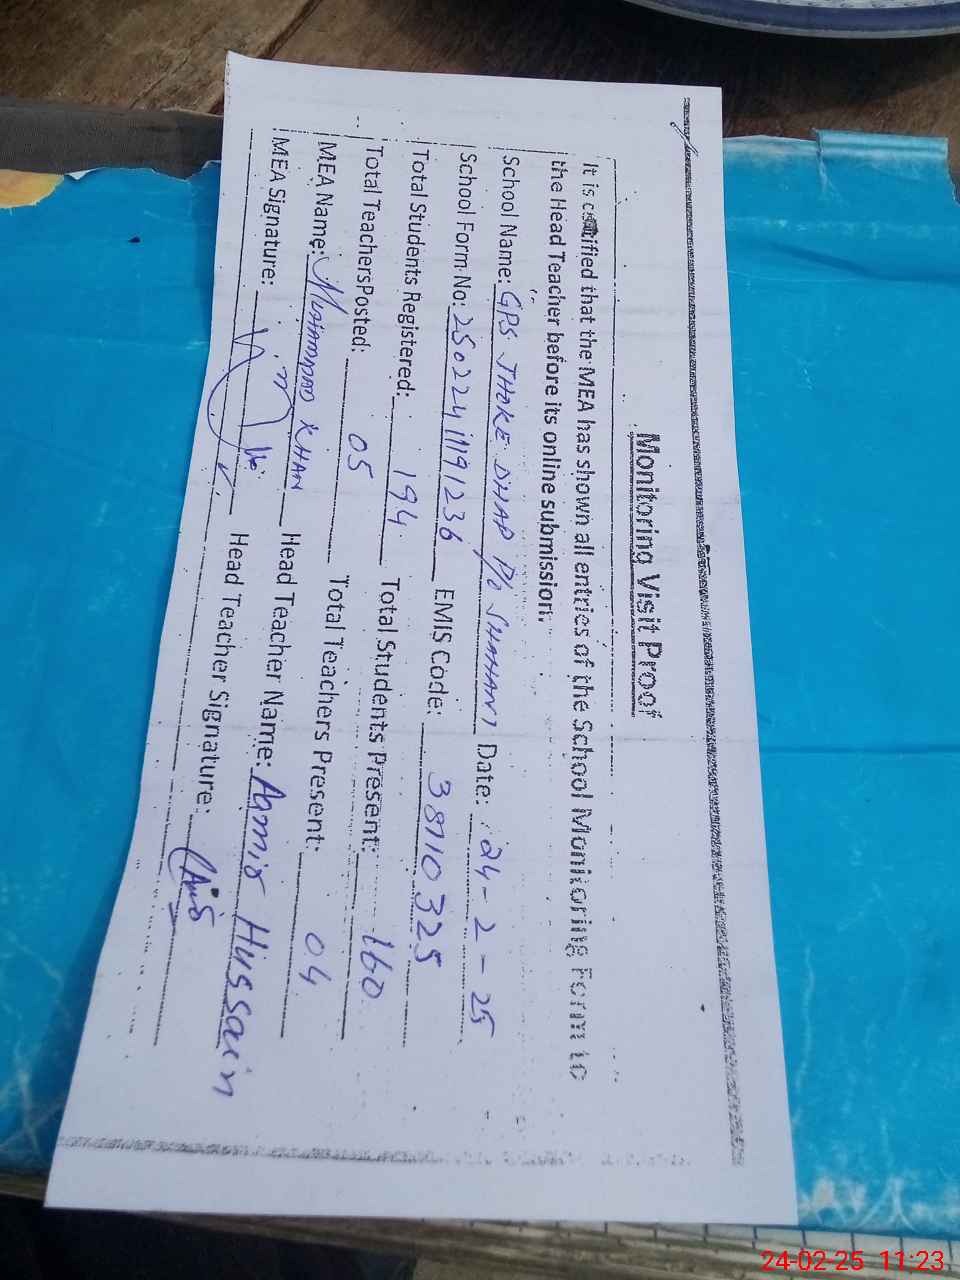 Monitoring Visit Proof
It is certified that the MEA has shown all entries of the School Monitoring Form to
the Head Teacher before its online submission.
School Name: GPS JHOKE DHAP P/o SHAHANI Date: 24-2-25
School Form No: 250224111191236 EMIS Code: 38110325
Total Students Registered: 194 Total Students Present: 160
Total TeachersPosted: 05 Total Teachers Present: 04
MEA Name: MUHAMMAD KHAN Head Teacher Name: Aamir Hussain
MEA Signature: Head Teacher Signature:
24-02-25 11:23